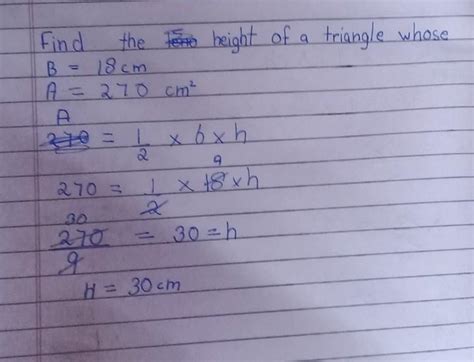 Find the height of a triangle whose
B = 18cm
A = 270 cm²
A
270 = 1/2 × b × h
9
270 = 1/2 × 18 × h
30
270/9 = 30 = h
H = 30cm